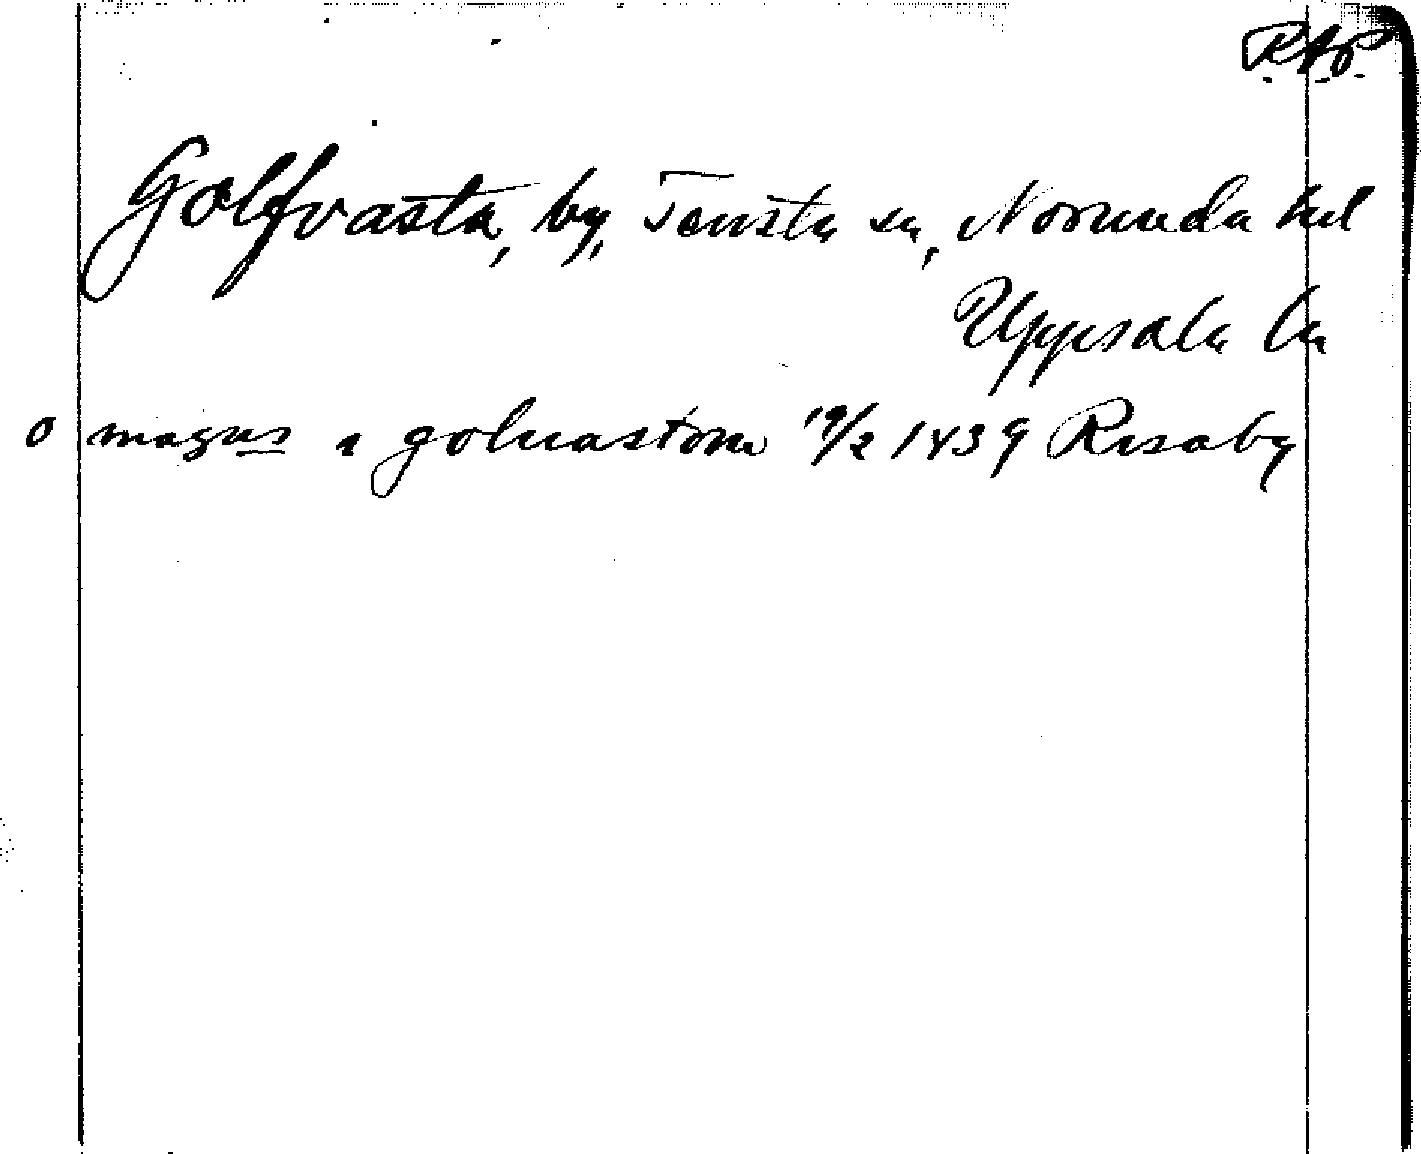 RAp
Golfvasta, by, Tensta sn, Norunda hd
Uppsala ln
o magnus i goluastom 19/2 1439 Risaby